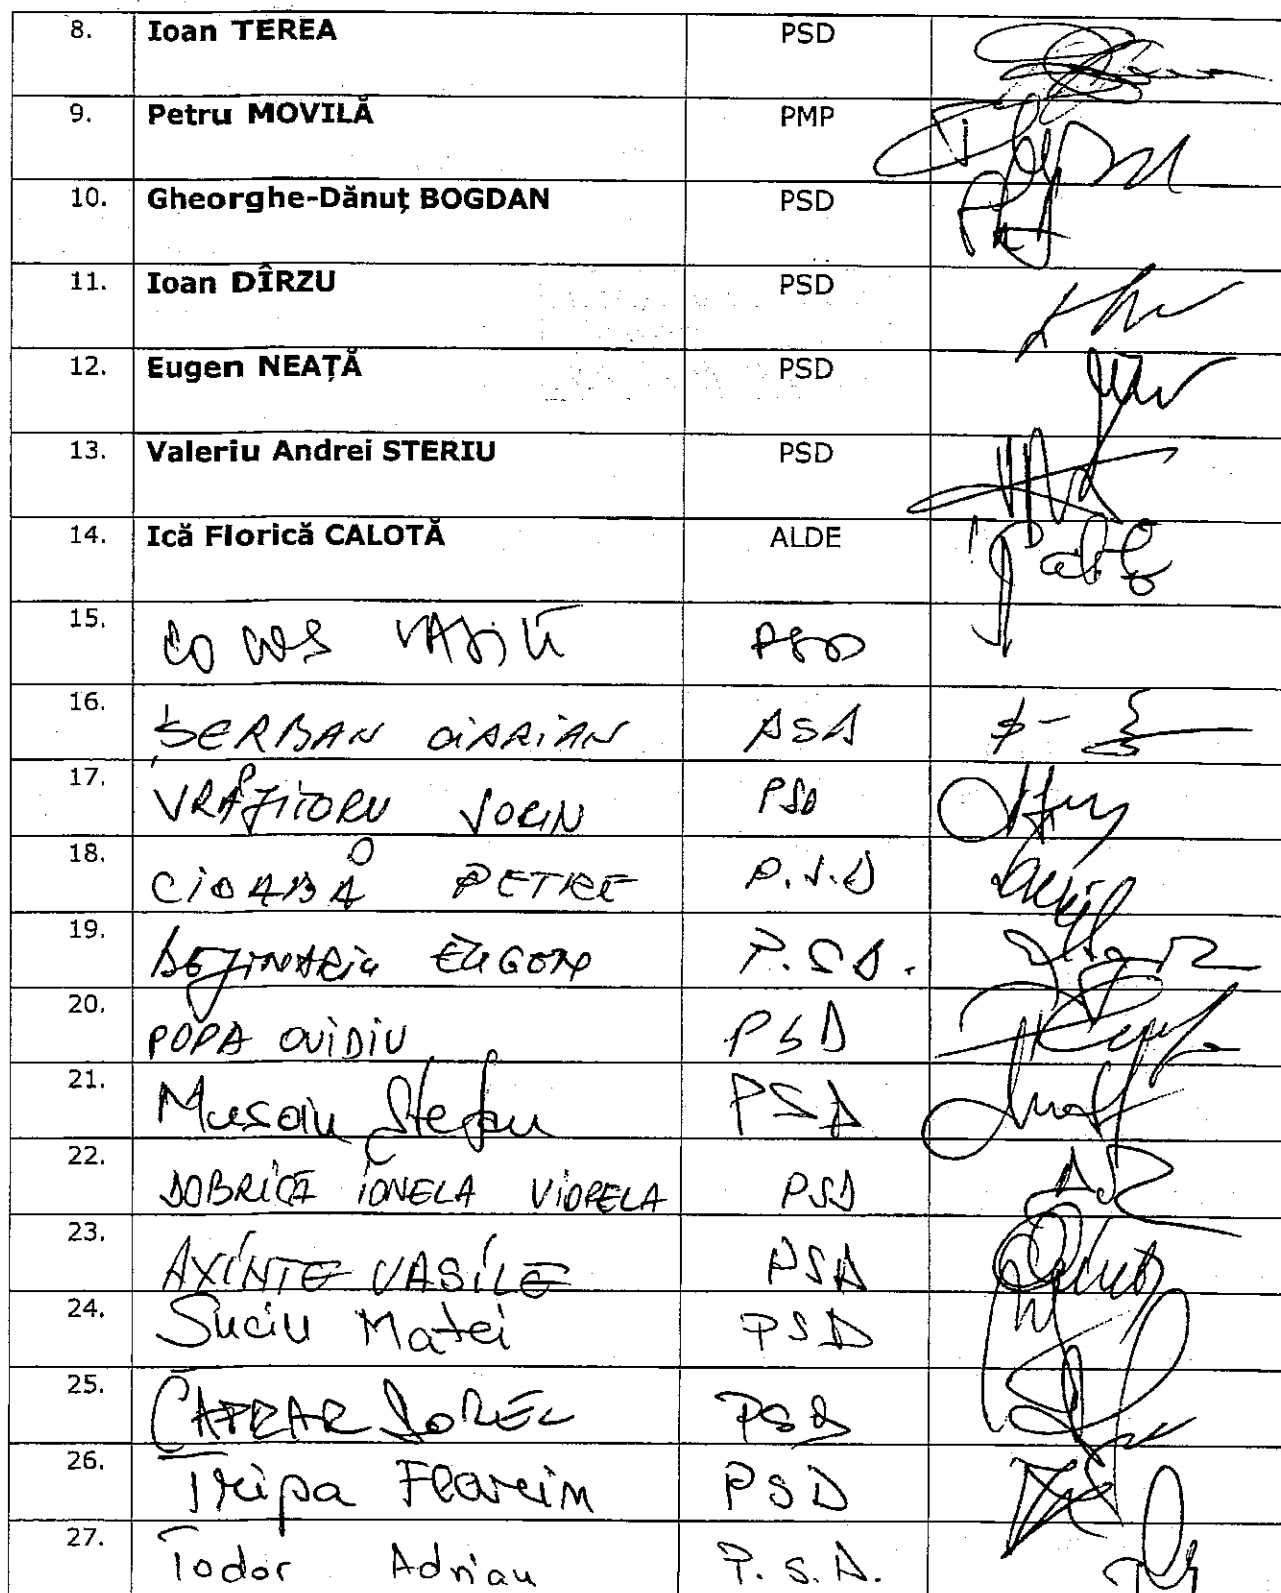 8. Ioan TEREA PSD
9. Petru MOVILĂ PMP
10. Gheorghe-Dănuț BOGDAN PSD
11. Ioan DÎRZU PSD
12. Eugen NEAȚĂ PSD
13. Valeriu Andrei STERIU PSD
14. Ică Florică CALOTĂ ALDE
15. COCOȘ VASILE PSD
16. ȘERBAN CIPRIAN PSD
17. VRĂJITORU SORIN PSD
18. CIOABĂ PETRE P.S.D
19. BEJINARIU EUGEN P.S.D.
20. POPA OVIDIU PSD
21. Musoiu Ștefan PSD
22. DOBRICĂ IONELA VIORELA PSD
23. AXINTE VASILE PSD
24. Suciu Matei PSD
25. CAPRAR DOREL PSD
26. Tripa Florin PSD
27. Todor Adrian P.S.D.